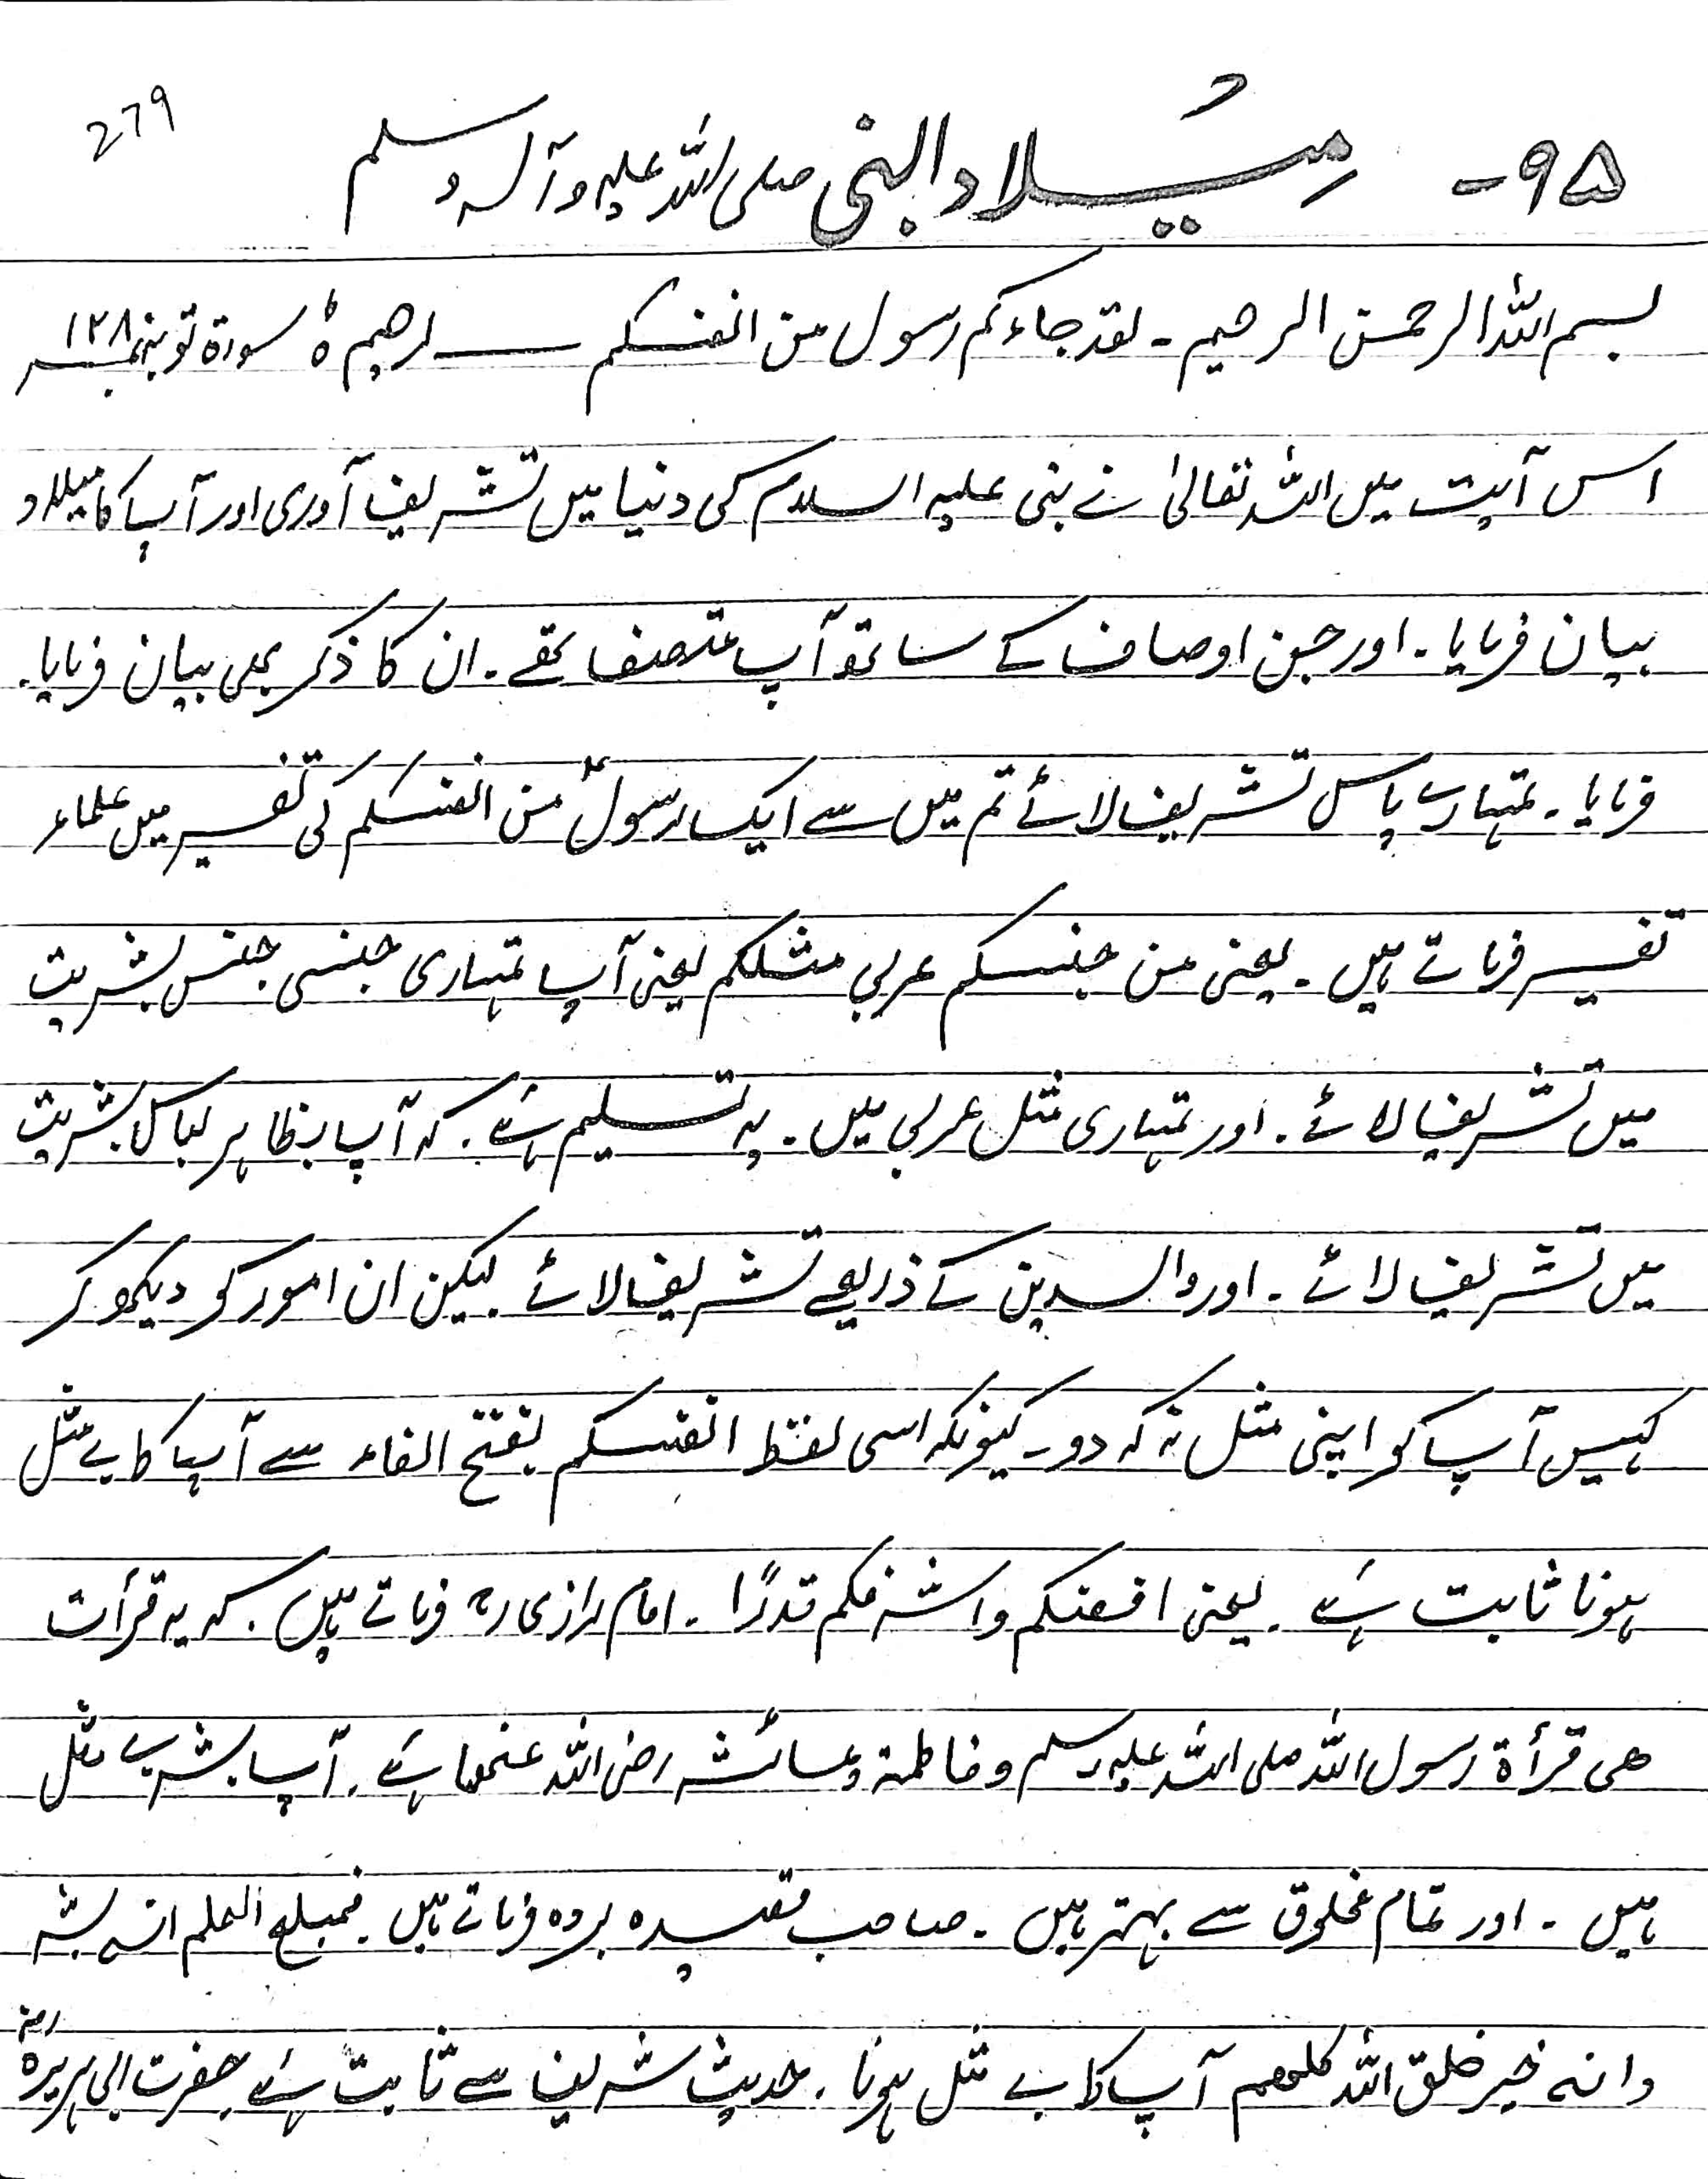 279
۹۵- میلاد النبی صلی اللہ علیہ وآلہ وسلم
بسم اللہ الرحمن الرحیم ۔ لقد جاءکم رسول من انفسکم ــــ لرحیم ہ سورۃ توبہ نمبر ۱۲۸
اس آیت میں اللہ تعالیٰ نے نبی علیہ السلام کی دنیا میں تشریف آوری اور آپ کا میلاد
بیان فرمایا ۔ اور جن اوصاف کے ساتھ آپ متصف تھے ۔ ان کا ذکر بھی بیان فرمایا ۔
فرمایا ۔ تمہارے پاس تشریف لائے تم میں سے ایک رسولؐ من انفسکم کی تفسیر میں علماء
تفسیر فرماتے ہیں ۔ یعنی من جنسکم عربی مثلکم یعنی آپ تمہاری جنسی جنس بشریت
میں تشریف لائے ۔ اور تمہاری مثل عربی میں ۔ یہ تسلیم ہے ۔ کہ آپ بظاہر لباس بشریت
میں تشریف لائے ۔ اور والدین کے ذریعے تشریف لائے ۔ لیکن ان امور کو دیکھ کر
کہیں آپ کو اپنی مثل نہ کہ دو ۔ کیونکہ اسی لفظ انفسکم بفتح الفاء سے آپ کا بے مثل
ہونا ثابت ہے ۔ یعنی انفسکم واشرفکم قدرًا ۔ امام رازی رح فرماتے ہیں ۔ کہ یہ قرأت
ھی قرأة رسول اللہ صلی اللہ علیہ وسلم و فاطمة و عائشہ رضی اللہ عنھما ہے ۔ آپ بشر بے مثل
ہیں ۔ اور تمام مخلوق سے بہتر ہیں ۔ صاحب قصیدہ بردہ فرماتے ہیں ۔ فمبلغ العلم انہ بشر
وانہ خیر خلق اللہ کلھم آپ کا بے مثل ہونا ۔ حدیث شریف سے ثابت ہے حضرت ابی ہریرہ رضہ